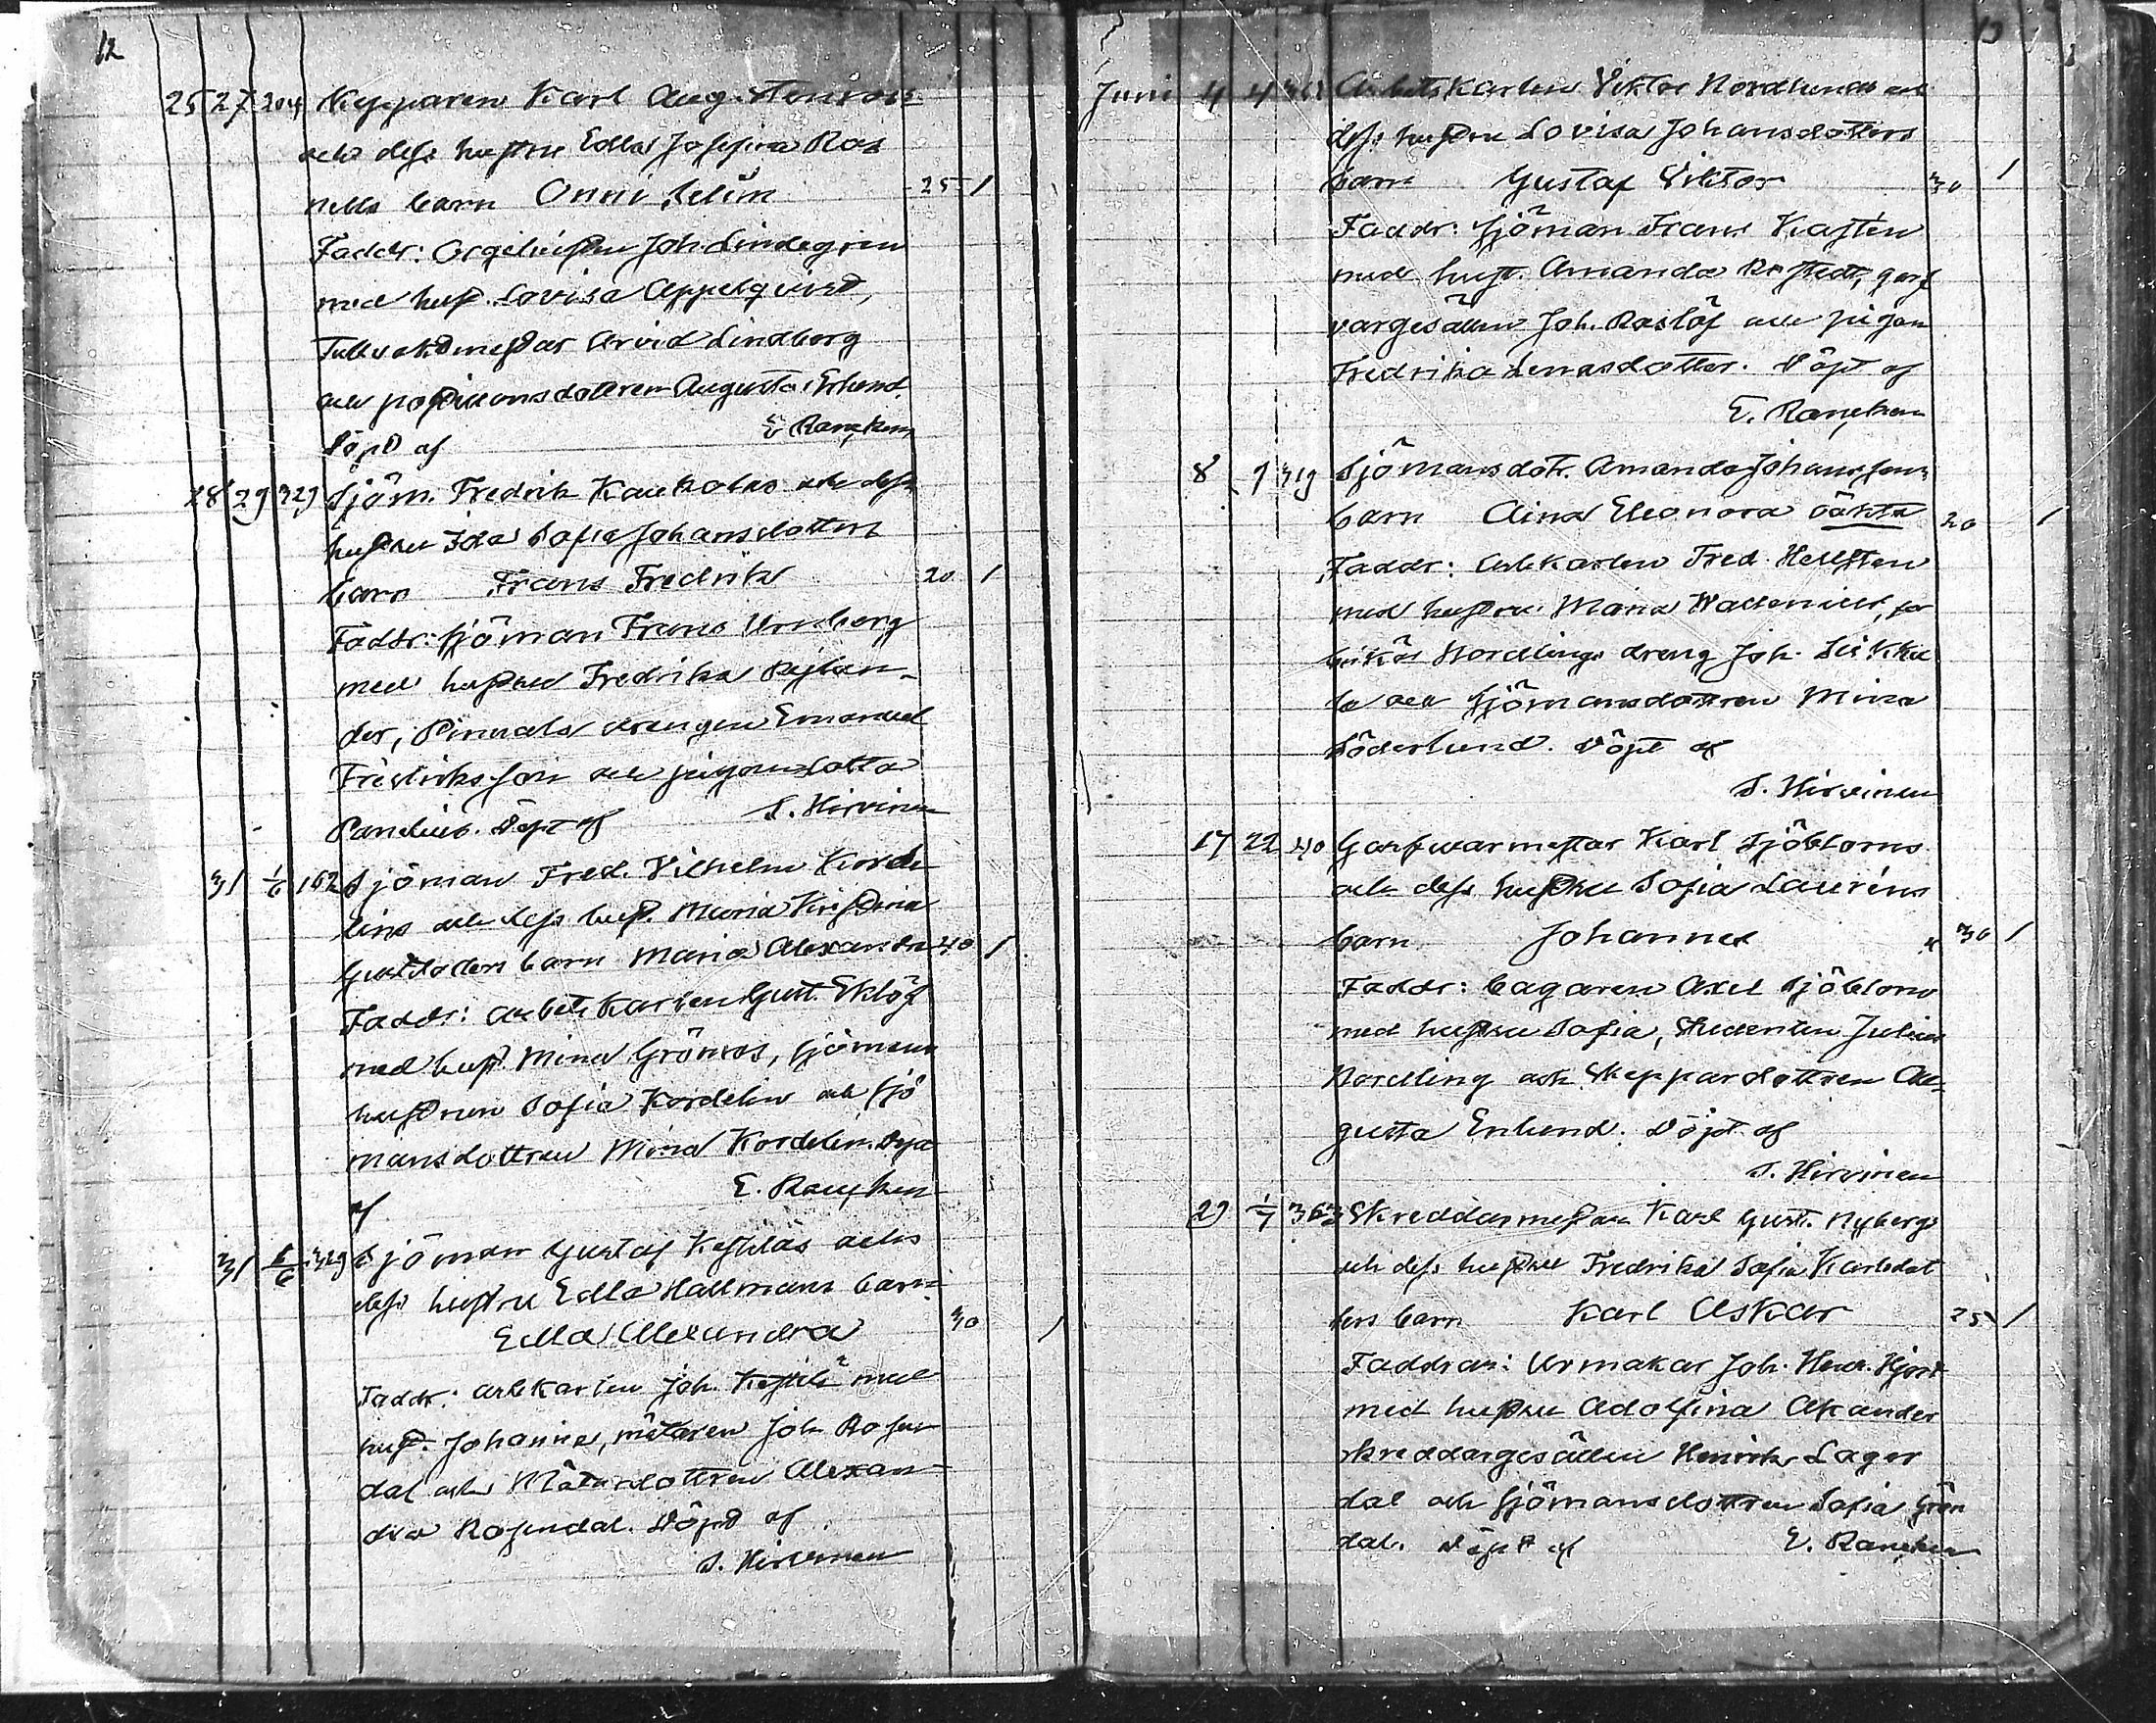 12
25 27 204 Skepparen Karl Aug. Stenroos
och dess hustru Edla Josefina Ros
nells barn Onni Selim 25 1
Faddr: Joh. Lindegren
med hust. Lovisa Appelqvist,
Tullvaktmestar Arvid Lindberg
och Augusta Erlund.
Döpt af E Rancken
28 29 329 Sjöm. Fredrik Kaukolas och dess
hustru Ida Sofia Johansdotters
barn Frans Fredrik 20 1
Faddr: Sjöman Frans Urnberg
med hustru Fredrika Rejlan-
der, drengen Emanuel
Fredriksson och pigan Lotta
Pandius. Döpt af S. Hirvinen
31 1/6 162 Sjöman Fred. Vilhelm Korde
lins och dess hust. Maria Kristina
Gustafsdoters barn Maria Alexandra 40 1
Faddr: arbetskarlen Gust. Eklöf
med hust. Mina Grönroos, sjömans
hustrun Sofia Kordelin och sjö
mansdottren Mina Kordelin. Döpt
af E. Rancken
31 6/6 329 Sjöman Gustaf Kestiläs och
dess hustru Edla Hallmans barn
Edla Alexandra 30 1
Faddr: arbkarlen Joh. Kestilä med
hust. Johanna, mätaren Joh Rosen
dal och Mätardottren Alexan-
dra Rosendal. Döpt af
S. Hirvinen
13
Juni 4 4 Arbetskarlen Viktor Nordlunds och
dess hustru Lovisa Johansdotters
barn Gustaf Viktor 30 1
Faddr: sjöman Frans Kastén
med hust. Amanda garf
vargesällen Joh. Roslöf och pigan
Fredrika Lenasdotter. Döpt af
E. Rancken
8 9 319 Sjömansdotr. Amanda Johanssons
barn Aina Eleonora oäkta 20 1
Faddr: Arbkarlen Fred. Hellsten
med hustru Maria Wallenius, fa
brikör Nordlings dreng Joh. Sirkka
la och sjömansdottren Mina
Söderlund. Döpt af
S. Hirvinen
17 22 40 Garfvarmestar Karl Sjöbloms
och dess hustru Sofia Lauréns
barn Johannes " 30 1
Faddr: bagaren Axel Sjöblom
med hustru Sofia, Studenten Julius
Nordling och Skeppardottren Au-
gusta Enlund. Döpt af
S. Hirvinen
29 1/7 363 Skreddarmestar Karl Gust. Nybergs
och dess hustru Fredrika Sofia Karlsdot
ters barn Karl Oskar 25 1
Faddrar: Urmakar Joh. Henr. Hjort
med hustru Adolfina Akander
skreddargesällen Henrik Lager
dal och sjömansdottren Sofia Grön
dal. Döpt af E. Rancken